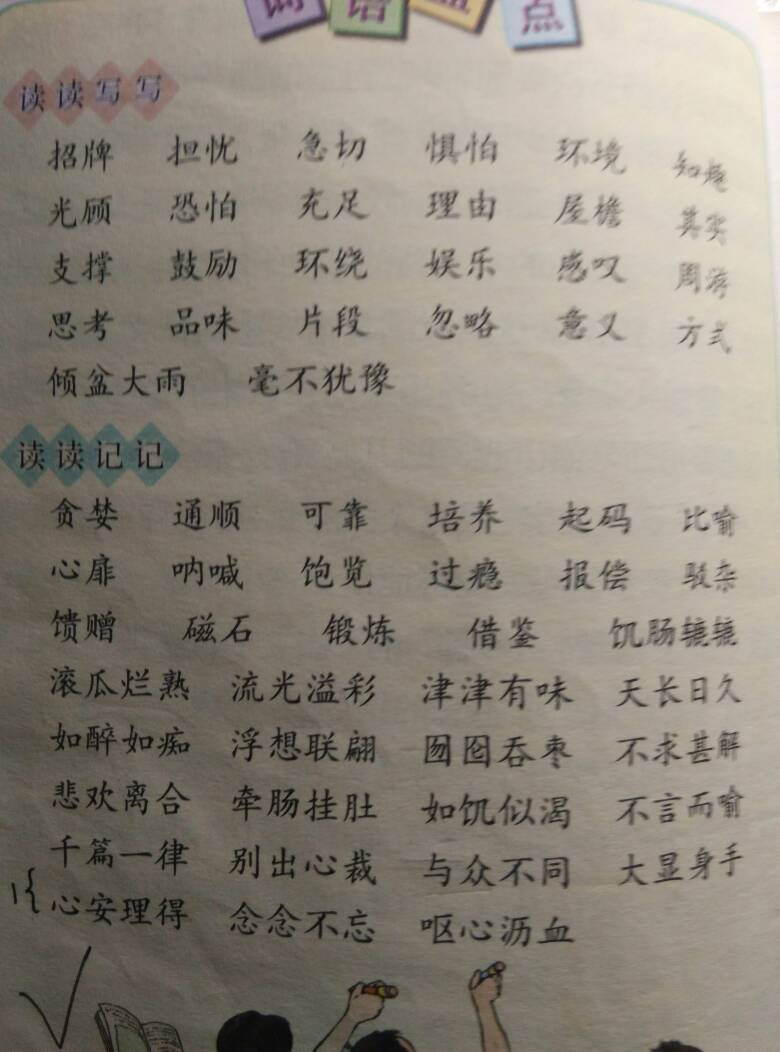 词语盘点
读读写写
招牌 担忧 急切 惧怕 环境 知趣
光顾 恐怕 充足 理由 屋檐 其实
支撑 鼓励 环绕 娱乐 感叹 周游
思考 品味 片段 忽略 意义 方式
倾盆大雨 毫不犹豫
读读记记
贪婪 通顺 可靠 培养 起码 比喻
心扉 呐喊 饱览 过瘾 报偿 驳杂
馈赠 磁石 锻炼 借鉴 饥肠辘辘
滚瓜烂熟 流光溢彩 津津有味 天长日久
如醉如痴 浮想联翩 囫囵吞枣 不求甚解
悲欢离合 牵肠挂肚 如饥似渴 不言而喻
千篇一律 别出心裁 与众不同 大显身手
心安理得 念念不忘 呕心沥血